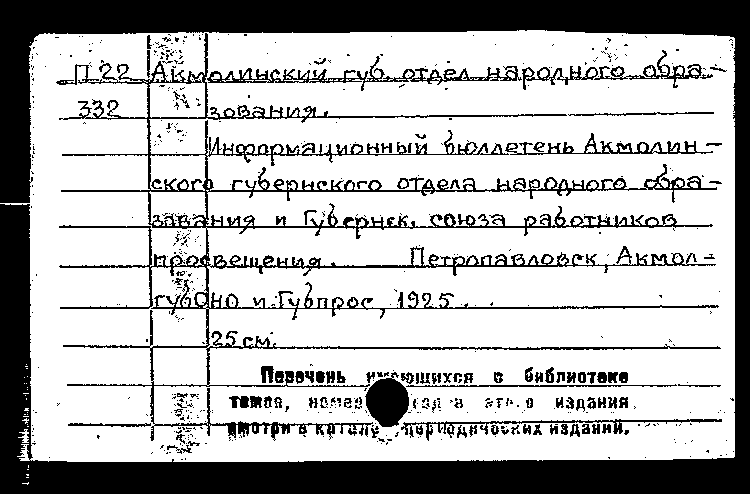 П 22 Акмолинский губ. отдел народного обра-
332 зования.
Информационный бюллетень Акмолин-
ского губернского отдела народного обра-
зования и Губернск. союза работников
просвещения. Петропавловск, Акмол-
губОНО и Губпрос, 1925.
25 см.
Перечень имеющихся в библиотеке
томов, номеров издания
смотри в каталоге периодических изданий.